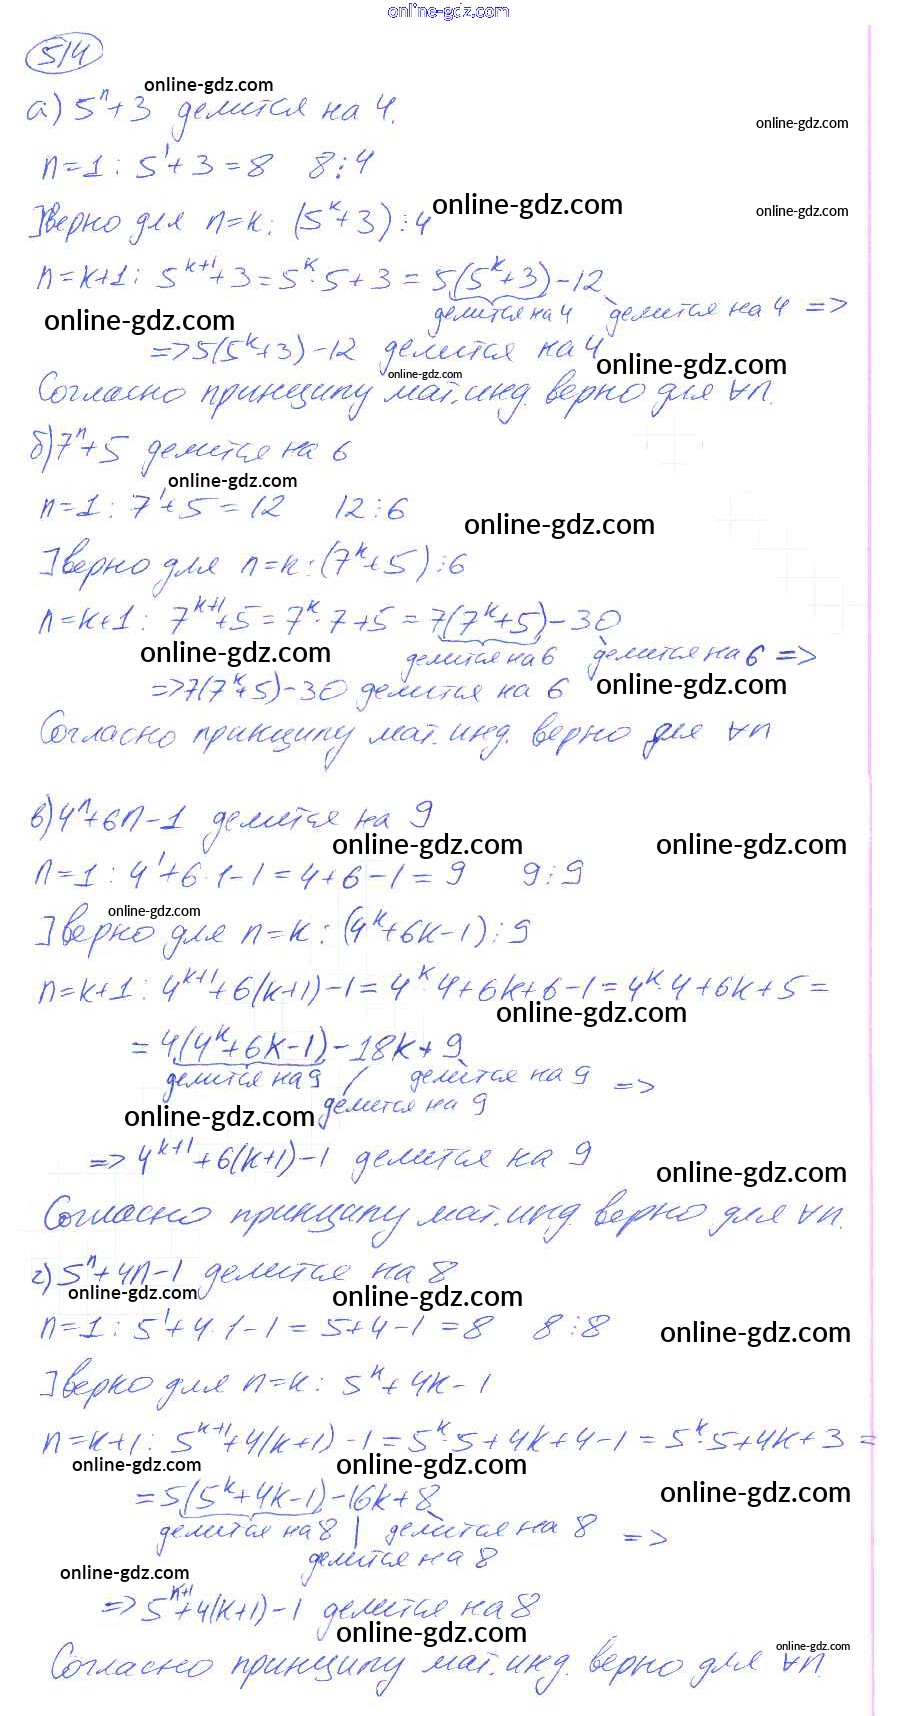 online-gdz.com
514
online-gdz.com
а) 5ⁿ+3 делится на 4.
online-gdz.com
n=1: 5¹+3=8 8⋮4
online-gdz.com
online-gdz.com
]верно для n=k: (5ᵏ+3)⋮4
n=k+1: 5ᵏ⁺¹+3=5ᵏ·5+3=5(5ᵏ+3)-12
делится на 4 делится на 4 =>
online-gdz.com
=>5(5ᵏ+3)-12 делится на 4
online-gdz.com
online-gdz.com
Согласно принципу мат.инд. верно для ∀n.
б) 7ⁿ+5 делится на 6
online-gdz.com
n=1: 7¹+5=12 12⋮6
online-gdz.com
]верно для n=k: (7ᵏ+5)⋮6
n=k+1: 7ᵏ⁺¹+5=7ᵏ·7+5=7(7ᵏ+5)-30
online-gdz.com
делится на 6 делится на 6 =>
=>7(7ᵏ+5)-30 делится на 6
online-gdz.com
Согласно принципу мат.инд. верно для ∀n
в) 4ⁿ+6n-1 делится на 9
online-gdz.com
online-gdz.com
n=1: 4¹+6·1-1=4+6-1=9 9⋮9
online-gdz.com
]верно для n=k: (4ᵏ+6k-1)⋮9
n=k+1: 4ᵏ⁺¹+6(k+1)-1=4ᵏ·4+6k+6-1=4ᵏ·4+6k+5=
online-gdz.com
=4(4ᵏ+6k-1)-18k+9
делится на 9 делится на 9 =>
online-gdz.com
делится на 9
=>4ᵏ⁺¹+6(k+1)-1 делится на 9
online-gdz.com
Согласно принципу мат.инд. верно для ∀n.
г) 5ⁿ+4n-1 делится на 8
online-gdz.com
online-gdz.com
n=1: 5¹+4·1-1=5+4-1=8 8⋮8
online-gdz.com
]верно для n=k: 5ᵏ+4k-1
n=k+1: 5ᵏ⁺¹+4(k+1)-1=5ᵏ·5+4k+4-1=5ᵏ·5+4k+3=
online-gdz.com
online-gdz.com
online-gdz.com
=5(5ᵏ+4k-1)-16k+8
делится на 8 делится на 8 =>
делится на 8
online-gdz.com
=>5ᵏ⁺¹+4(k+1)-1 делится на 8
online-gdz.com
online-gdz.com
Согласно принципу мат.инд. верно для ∀n.